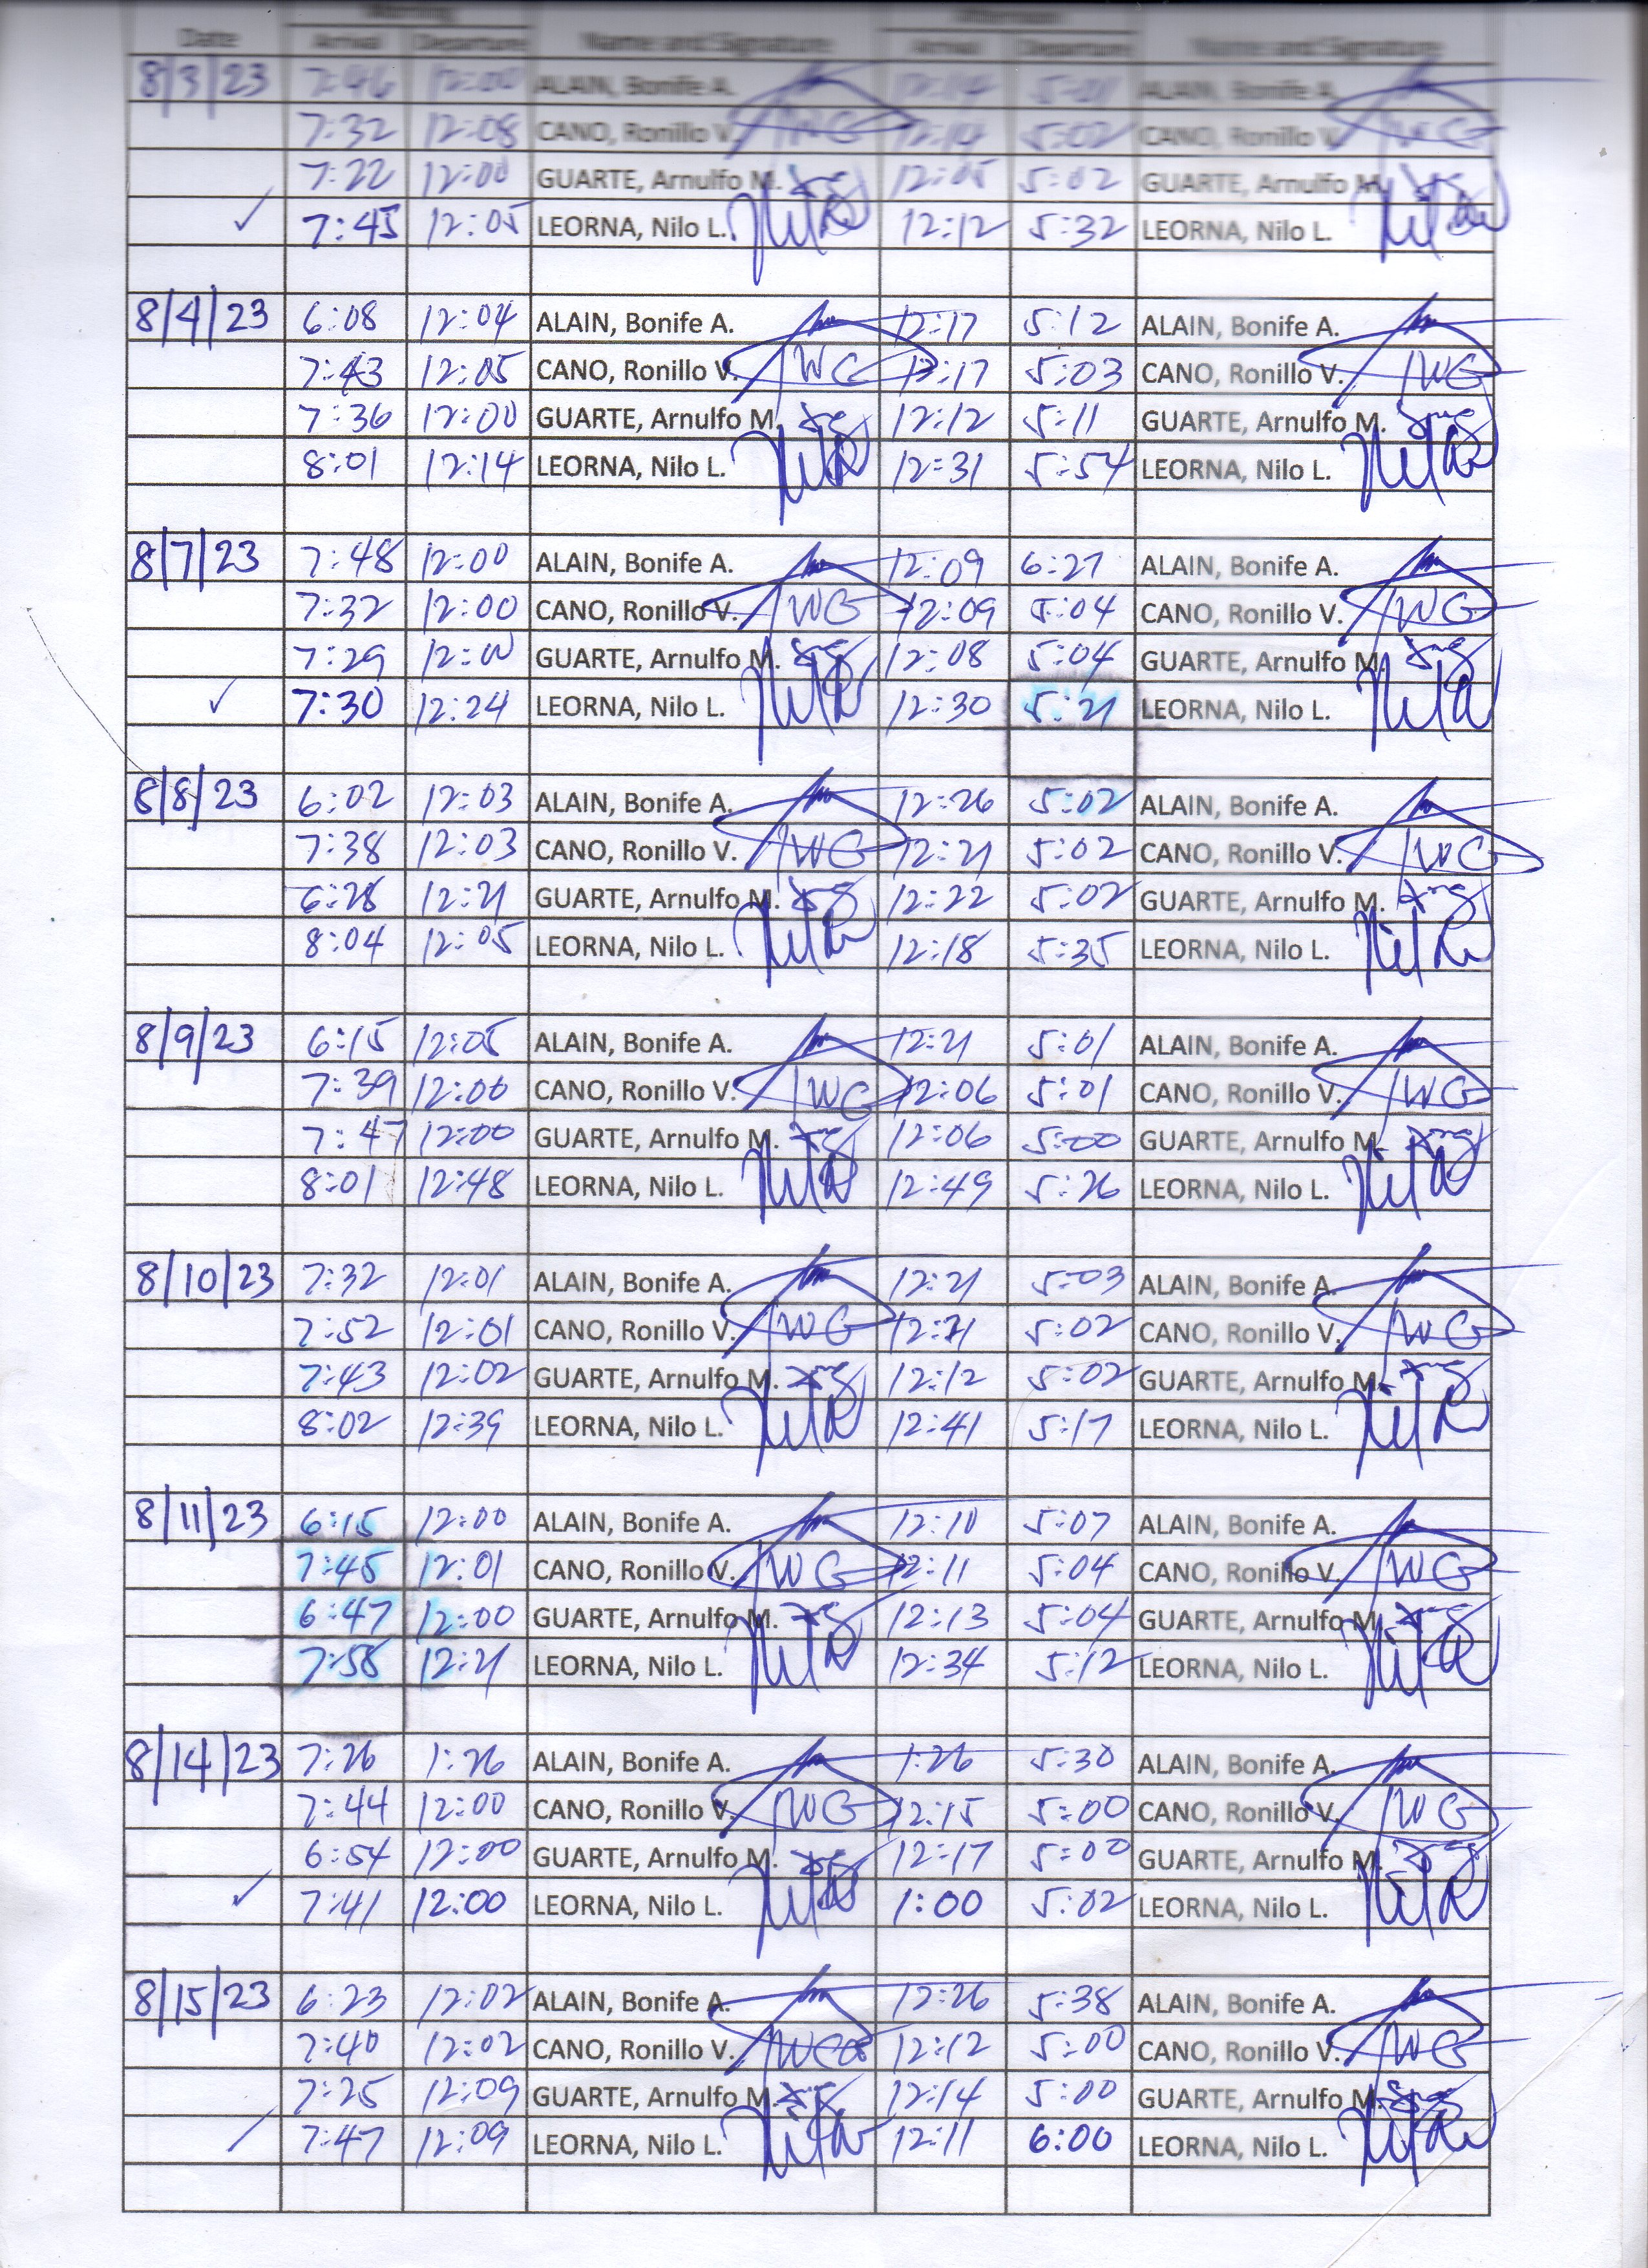 Morning Afternoon
Date Arrival Departure Name and Signature Arrival Departure Name and Signature
8/3/23 7:46 12:00 ALAIN, Bonife A. 12:14 5:01 ALAIN, Bonife A.
7:32 12:08 CANO, Ronillo V. 12:14 5:02 CANO, Ronillo V.
7:22 12:00 GUARTE, Arnulfo M. 12:05 5:02 GUARTE, Arnulfo M.
7:45 12:05 LEORNA, Nilo L. 12:12 5:32 LEORNA, Nilo L.
8/4/23 6:08 12:04 ALAIN, Bonife A. 12:17 5:12 ALAIN, Bonife A.
7:43 12:05 CANO, Ronillo V. 12:17 5:03 CANO, Ronillo V.
7:36 12:00 GUARTE, Arnulfo M. 12:12 5:11 GUARTE, Arnulfo M.
8:01 12:14 LEORNA, Nilo L. 12:31 5:54 LEORNA, Nilo L.
8/7/23 7:48 12:00 ALAIN, Bonife A. 12:09 6:27 ALAIN, Bonife A.
7:32 12:00 CANO, Ronillo V. 12:09 5:04 CANO, Ronillo V.
7:29 12:00 GUARTE, Arnulfo M. 12:08 5:04 GUARTE, Arnulfo M.
7:30 12:24 LEORNA, Nilo L. 12:30 5:21 LEORNA, Nilo L.
8/8/23 6:02 12:03 ALAIN, Bonife A. 12:26 5:02 ALAIN, Bonife A.
7:38 12:03 CANO, Ronillo V. 12:21 5:02 CANO, Ronillo V.
6:28 12:21 GUARTE, Arnulfo M. 12:22 5:02 GUARTE, Arnulfo M.
8:04 12:05 LEORNA, Nilo L. 12:18 5:35 LEORNA, Nilo L.
8/9/23 6:15 12:05 ALAIN, Bonife A. 12:21 5:01 ALAIN, Bonife A.
7:39 12:00 CANO, Ronillo V. 12:06 5:01 CANO, Ronillo V.
7:47 12:00 GUARTE, Arnulfo M. 12:06 5:00 GUARTE, Arnulfo M.
8:01 12:48 LEORNA, Nilo L. 12:49 5:26 LEORNA, Nilo L.
8/10/23 7:32 12:01 ALAIN, Bonife A. 12:21 5:03 ALAIN, Bonife A.
7:52 12:01 CANO, Ronillo V. 12:21 5:02 CANO, Ronillo V.
7:43 12:02 GUARTE, Arnulfo M. 12:12 5:02 GUARTE, Arnulfo M.
8:02 12:39 LEORNA, Nilo L. 12:41 5:17 LEORNA, Nilo L.
8/11/23 6:15 12:00 ALAIN, Bonife A. 12:10 5:07 ALAIN, Bonife A.
7:45 12:01 CANO, Ronillo V. 12:11 5:04 CANO, Ronillo V.
6:47 12:00 GUARTE, Arnulfo M. 12:13 5:04 GUARTE, Arnulfo M.
7:58 12:21 LEORNA, Nilo L. 12:34 5:12 LEORNA, Nilo L.
8/14/23 7:26 1:26 ALAIN, Bonife A. 1:26 5:30 ALAIN, Bonife A.
7:44 12:00 CANO, Ronillo V. 12:15 5:00 CANO, Ronillo V.
6:54 12:00 GUARTE, Arnulfo M. 12:17 5:00 GUARTE, Arnulfo M.
7:41 12:00 LEORNA, Nilo L. 1:00 5:02 LEORNA, Nilo L.
8/15/23 6:23 12:02 ALAIN, Bonife A. 12:26 5:38 ALAIN, Bonife A.
7:40 12:02 CANO, Ronillo V. 12:12 5:00 CANO, Ronillo V.
7:25 12:09 GUARTE, Arnulfo M. 12:14 5:00 GUARTE, Arnulfo M.
7:47 12:09 LEORNA, Nilo L. 12:11 6:00 LEORNA, Nilo L.